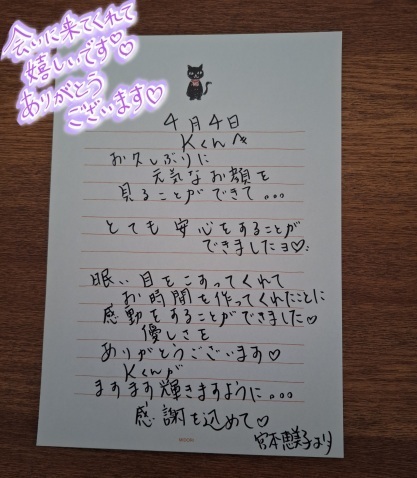 会いに来てくれて
嬉しいです♡♡
ありがとう
ございます♡
4月4日
Kくんへ
お久しぶりに
元気なお顔を
見ることができて...
とても安心をすることが
できましたヨ♡:
眠い目をこすってくれて
お時間を作ってくれたことに
感動をすることができました♡
優しさを
ありがとうございます♡
Kくんが
ますます輝きますように...
感謝を込めて♡
宮本恵美子より